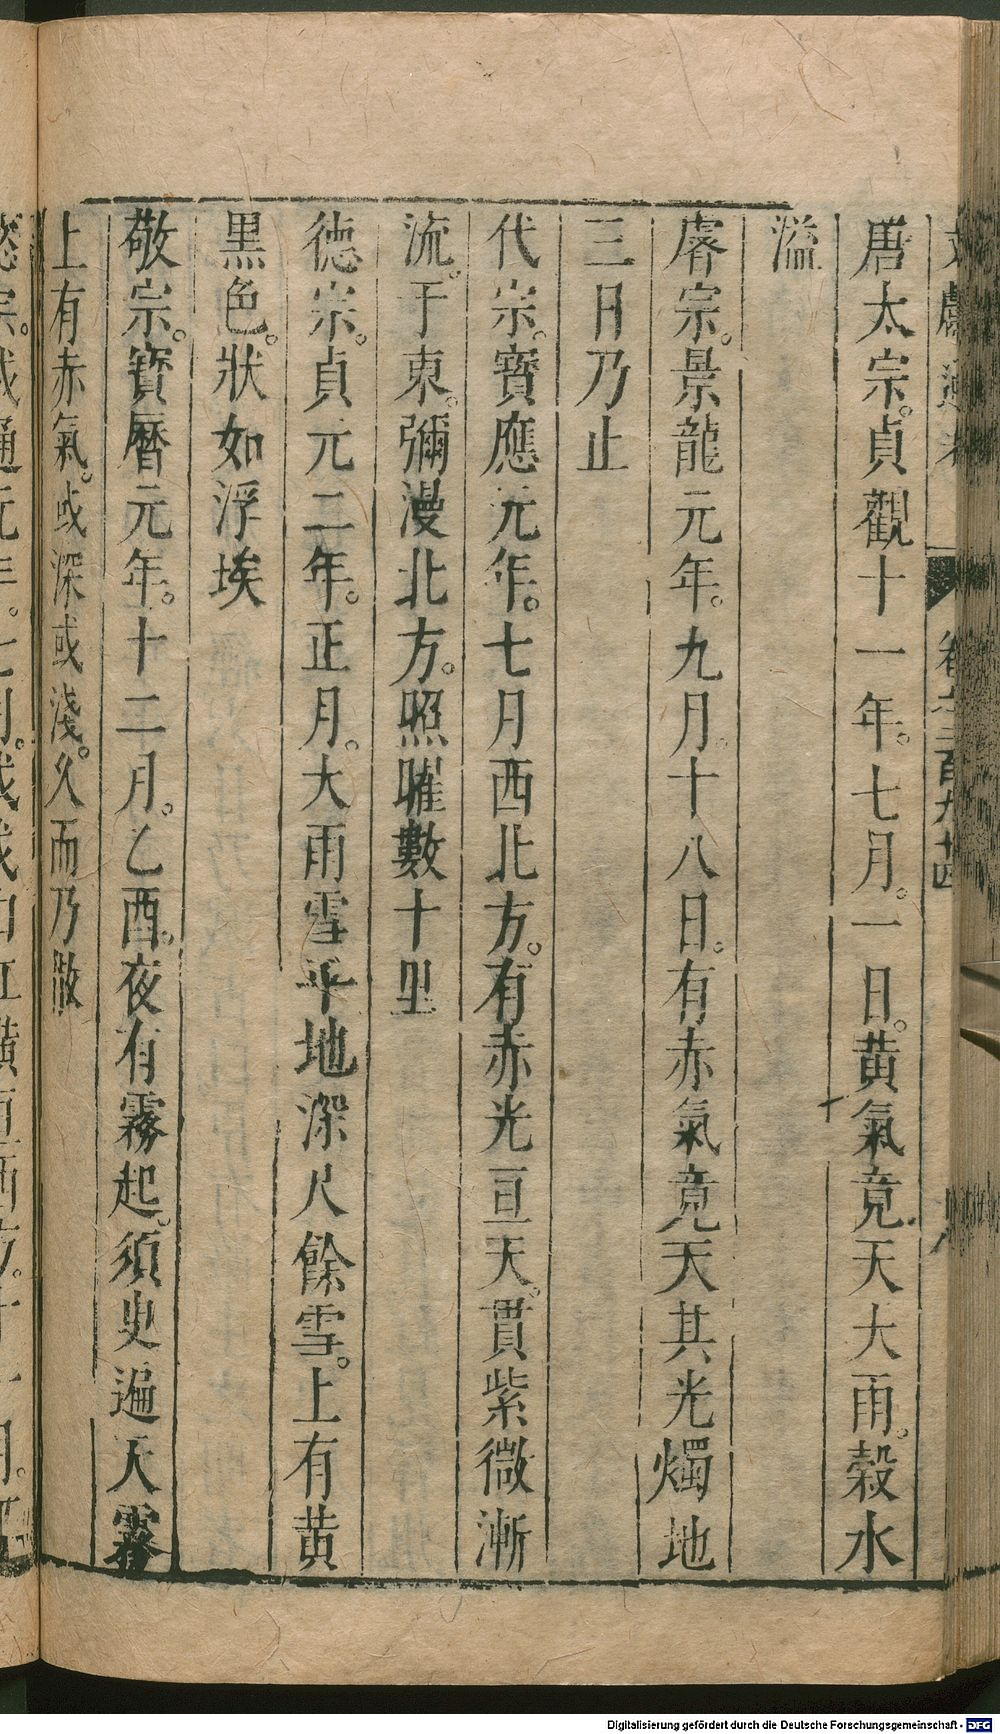 文獻通考 卷之三百九十四
唐太宗。貞觀十一年。七月。一日。黃氣竟天大雨。穀水
溢
睿宗。景龍元年。九月。十八日。有赤氣竟天其光燭地
三日乃止
代宗。寶應元年。七月西北方。有赤光亘天。貫紫微漸
流。于東。彌漫北方。照曜數十里
德宗。貞元二年。正月。大雨雪平地深尺餘雪。上有黃
黑色。狀如浮埃
敬宗。寶曆元年。十二月。乙酉。夜有霧起。須臾遍天霧
上有赤氣。或深或淺。久而乃散
懿宗。咸通元年。七月。
Digitalisierung gefördert durch die Deutsche Forschungsgemeinschaft - DFG